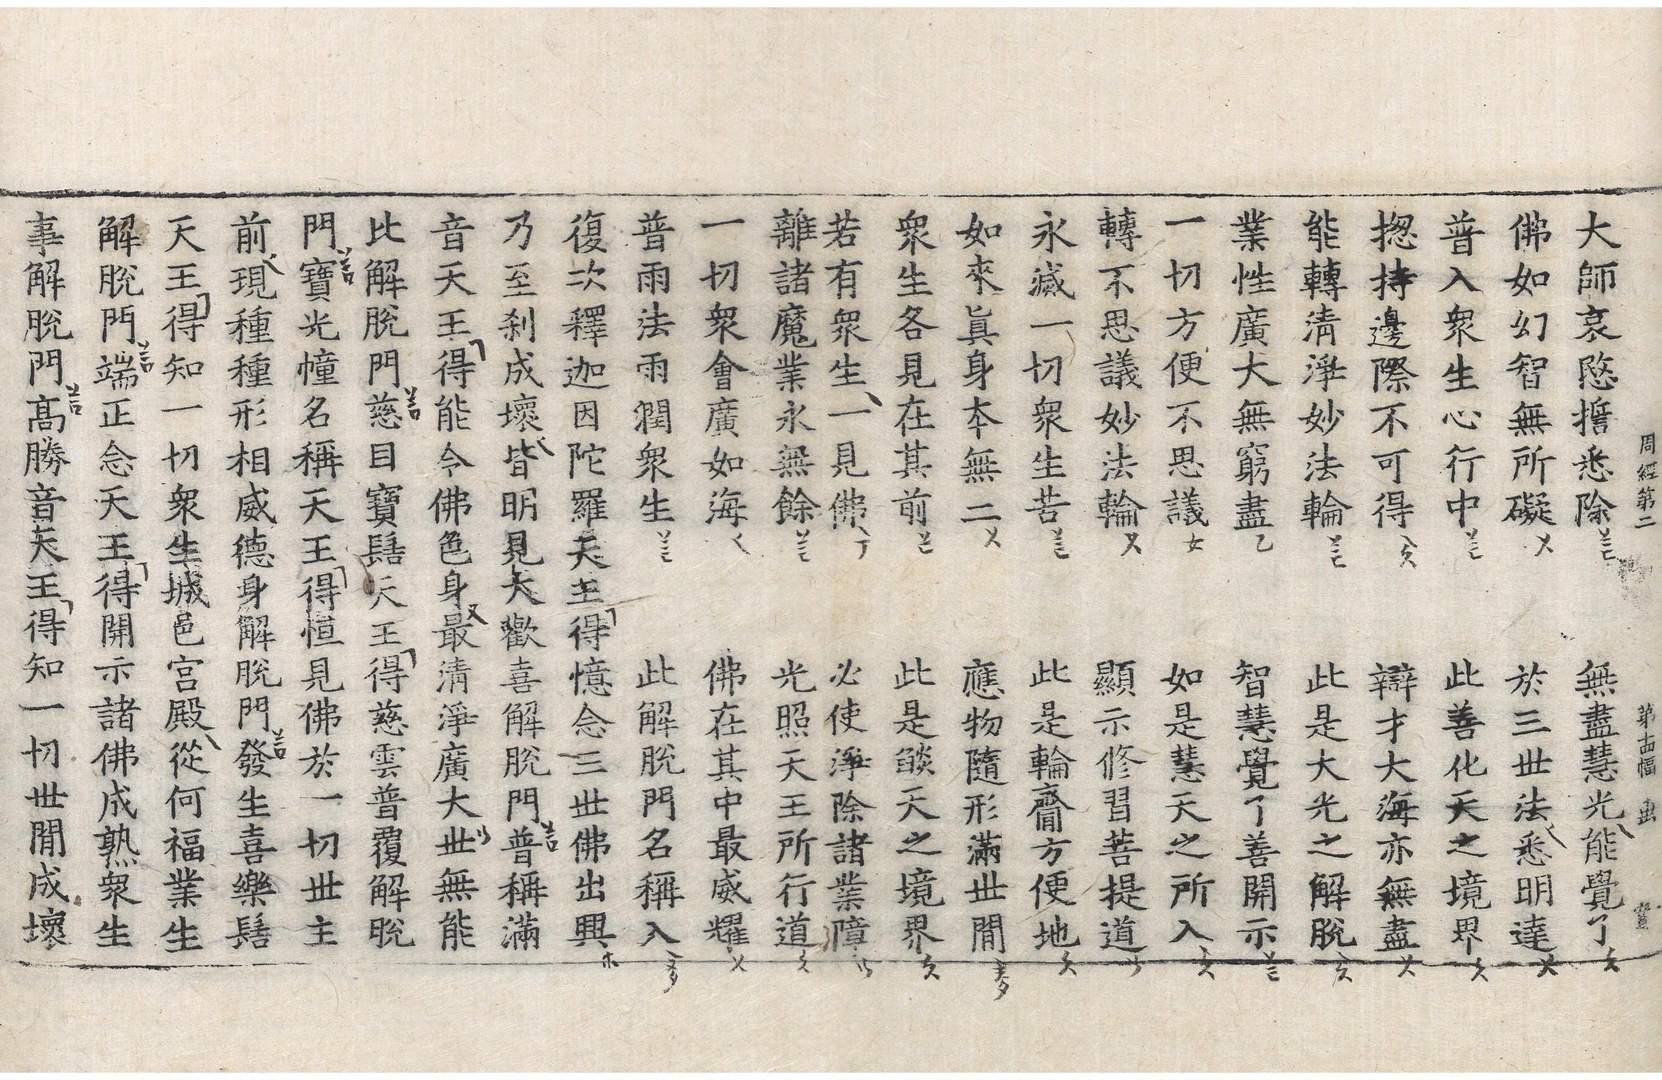 周經第二 第十四幅
大師哀愍擔悉除 無盡慧光能覺了
佛如幻智無所礙 於三世法悉明達
普入衆生心行中 此善化天之境界
揔持邊際不可得 辯才大海亦無盡
能轉清淨妙法輪 此是大光之解脫
業性廣大無窮盡 智慧覺了善開示
一切方便不思議 如是慧天之所入
轉不思議妙法輪 顯示修習菩提道
永滅一切衆生苦 此是輪齎方便地
如來眞身本無二 應物隨形滿世間
衆生各見在其前 此是燄天之境界
若有衆生一見佛 必使淨除諸業障
離諸魔業永無餘 光照天王所行道
一切衆會廣如海 佛在其中最威耀
普雨法雨潤衆生 此解脫門名稱入
復次釋迦因陀羅天王得憶念三世佛出興
乃至刹成壞皆明見大歡喜解脫門普稱滿
音天王得能令佛色身最清淨廣大世無能
比解脫門慈目寶髻天王得慈雲普覆解脫
門寶光幢名稱天王得恒見佛於一切世主
前現種種形相威德身解脫門發生喜樂髻
天王得知一切衆生城邑宮殿從何福業生
解脫門端正念天王得開示諸佛成熟衆生
事解脫門高勝音天王得知一切世間成壞